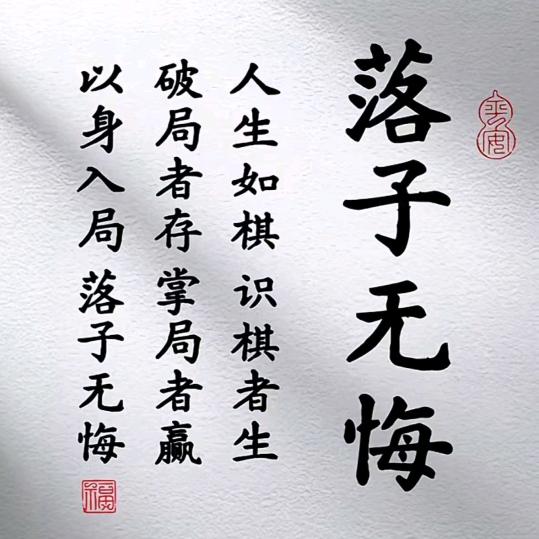 落子无悔
平安
人生如棋 识棋者生
破局者存 掌局者赢
以身入局 落子无悔
福